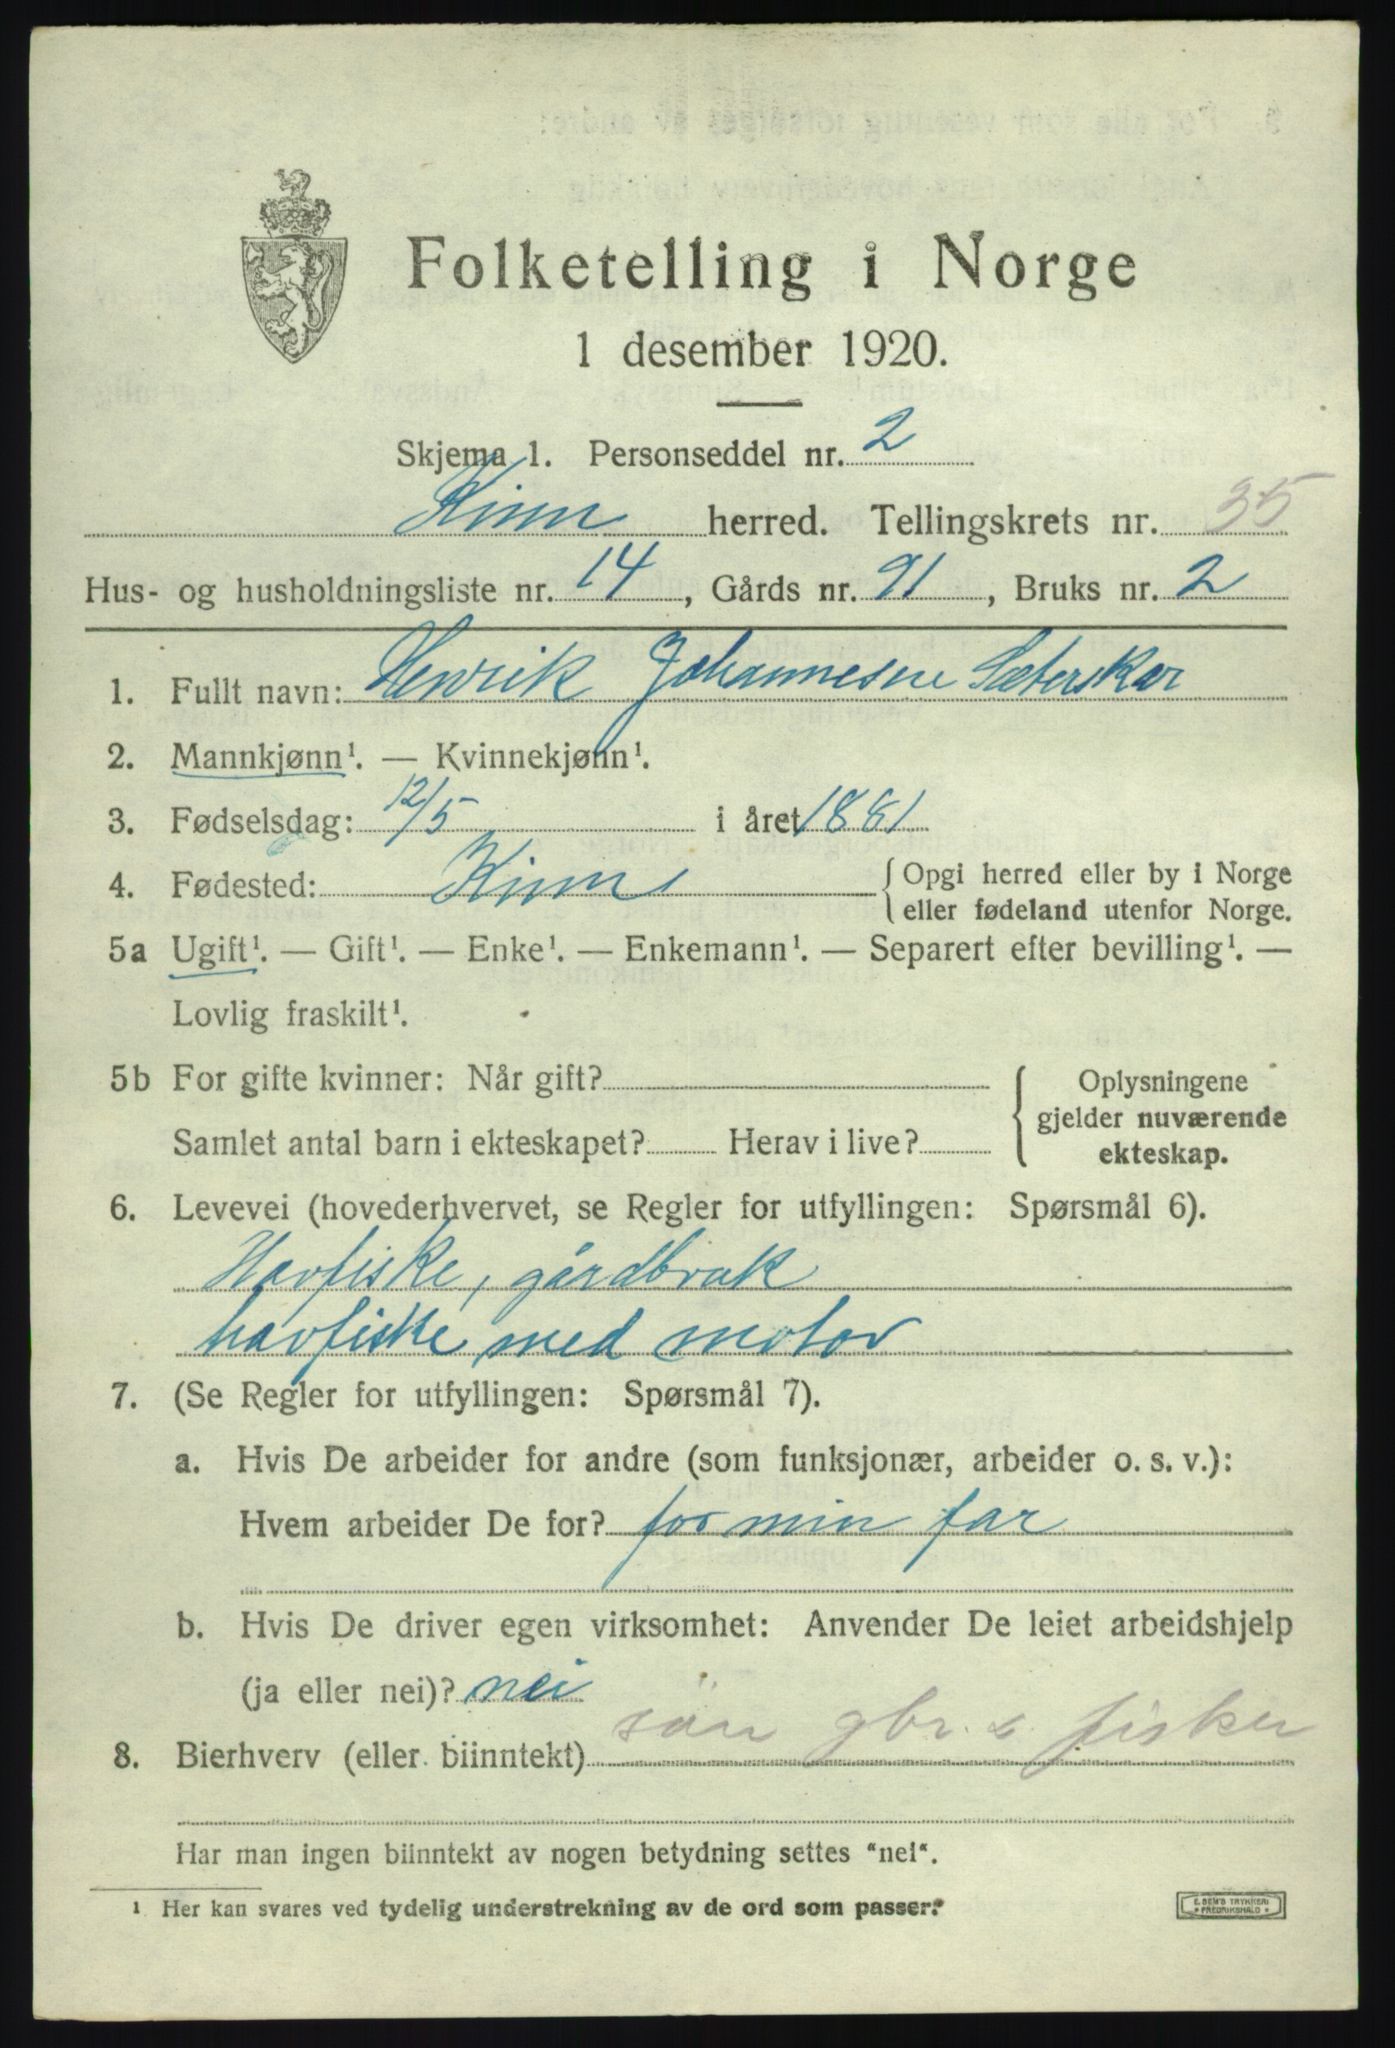 Folketelling i Norge
1 desember 1920.
Skjema 1. Personseddel nr. 2
Kinn herred. Tellingskrets nr. 35
Hus- og husholdningsliste nr. 14, Gårds nr. 91, Bruks nr. 2
1. Fullt navn: Henrik Johannesen Sæterskar
2. Mannkjønn¹. — Kvinnekjønn¹.
3. Fødselsdag: 12/5 i året 1881
4. Fødested: Kinn { Opgi herred eller by i Norge
eller fødeland utenfor Norge.
5a Ugift¹. — Gift¹. — Enke¹. — Enkemann¹. — Separert efter bevilling¹. —
Lovlig fraskilt¹.
5b For gifte kvinner: Når gift?
Samlet antal barn i ekteskapet? Herav i live?
{ Oplysningene
gjelder nuværende
ekteskap.
6. Levevei (hovederhvervet, se Regler for utfyllingen: Spørsmål 6).
Havfiske, gårdbruk
havfiske med motor
7. (Se Regler for utfyllingen: Spørsmål 7).
a. Hvis De arbeider for andre (som funksjonær, arbeider o. s. v.):
Hvem arbeider De for? for min far
b. Hvis De driver egen virksomhet: Anvender De leiet arbeidshjelp
(ja eller nei)? nei
søn gbr. & fisker
8. Bierhverv (eller biinntekt)
Har man ingen biinntekt av nogen betydning settes "nei".
¹ Her kan svares ved tydelig understrekning av de ord som passer.
E. SEM'S TRYKKERI
* FREDRIKSHALD *